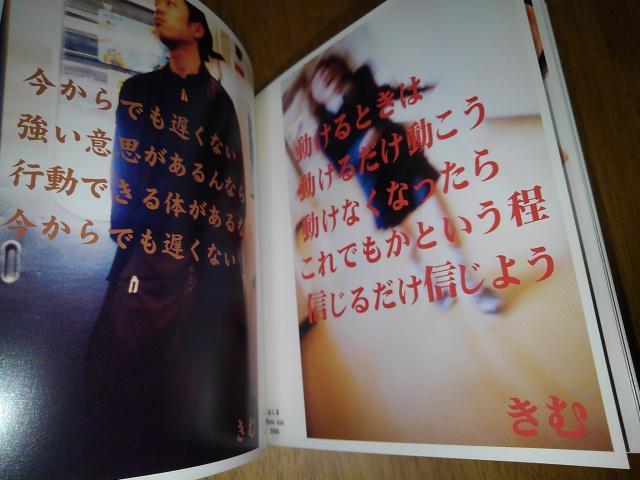 今からでも遅くない
強い意思があるんなら
行動できる体があるな
今からでも遅くない
きむ
動けるときは
動けるだけ動こう
動けなくなったら
これでもかという程
信じるだけ信じよう
きむ